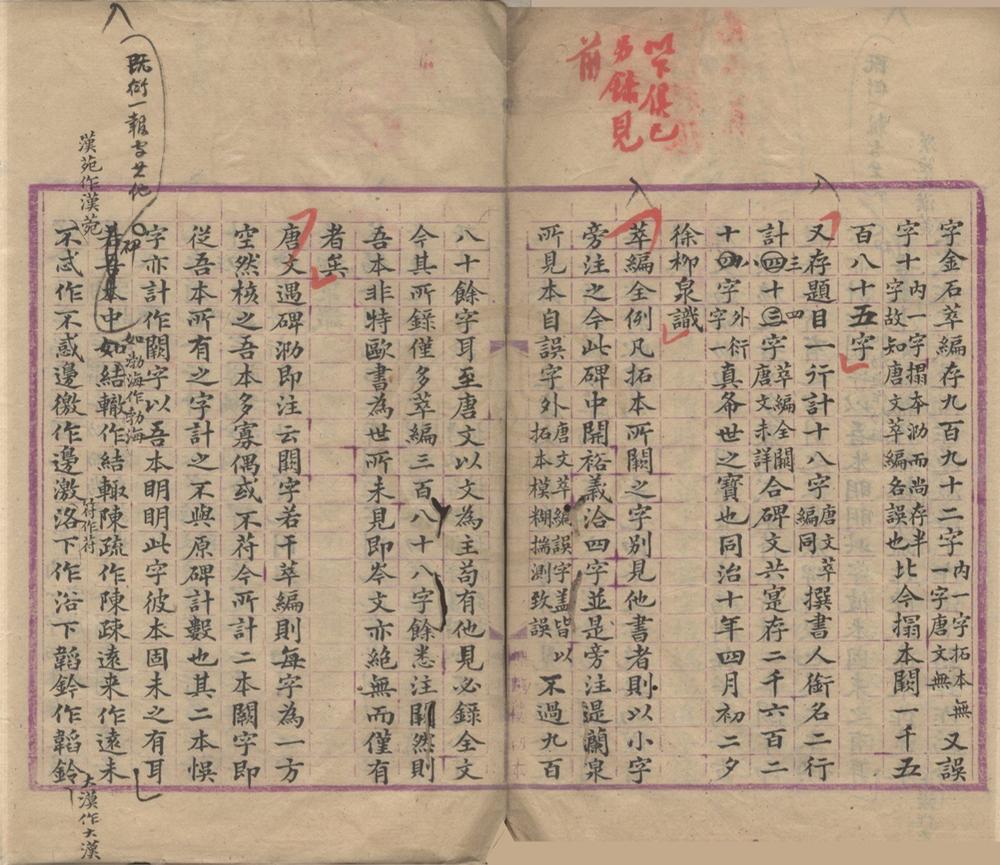 以下俱已
另錄見
前
字金石萃編存九百九十二字內一字拓本無一字唐文無又誤
字十內一字搨本泐而尚存半字故知唐文萃編名誤也比今搨本闕一千五
百八十五字
又存題目一行計十八字唐文萃編同撰書人銜名二行
計四十三字萃編全闕唐文未詳合碑文共寔存二千六百二
十四字外衍字一真希世之寶也同治十年四月初二夕
徐柳泉識
萃編全例凡拓本所闕之字別見他書者則以小字
旁注之今此碑中開裕義洽四字並是旁注湜蘭泉
所見本自誤字外唐文萃編誤字蓋皆以拓本模糊揣測致誤不過九百
八十餘字耳至唐文以文為主苟有他見必錄全文
今其所錄僅多萃編三百八十八字餘悉注闕然則
吾本非特歐書為世所未見即岑文亦絕無而僅有
者矣
唐文遇碑泐即注云闕字若干萃編則每字為一方
空然核之吾本多寡偶或不符今所計二本闕字即
從吾本所有之字計之不與原碑計數也其二本悮
字亦計作闕字以吾本明明此字彼本固未之有耳
碑中如結轍作結輙陳疏作陳疎遠来作遠未
如渤海作勃海
符作苻
不忒作不惑邊徼作邊激洛下作浴下韜鈐作韜鈴
大漢作大漢
漢苑作漢菀
既衍一報字廿他